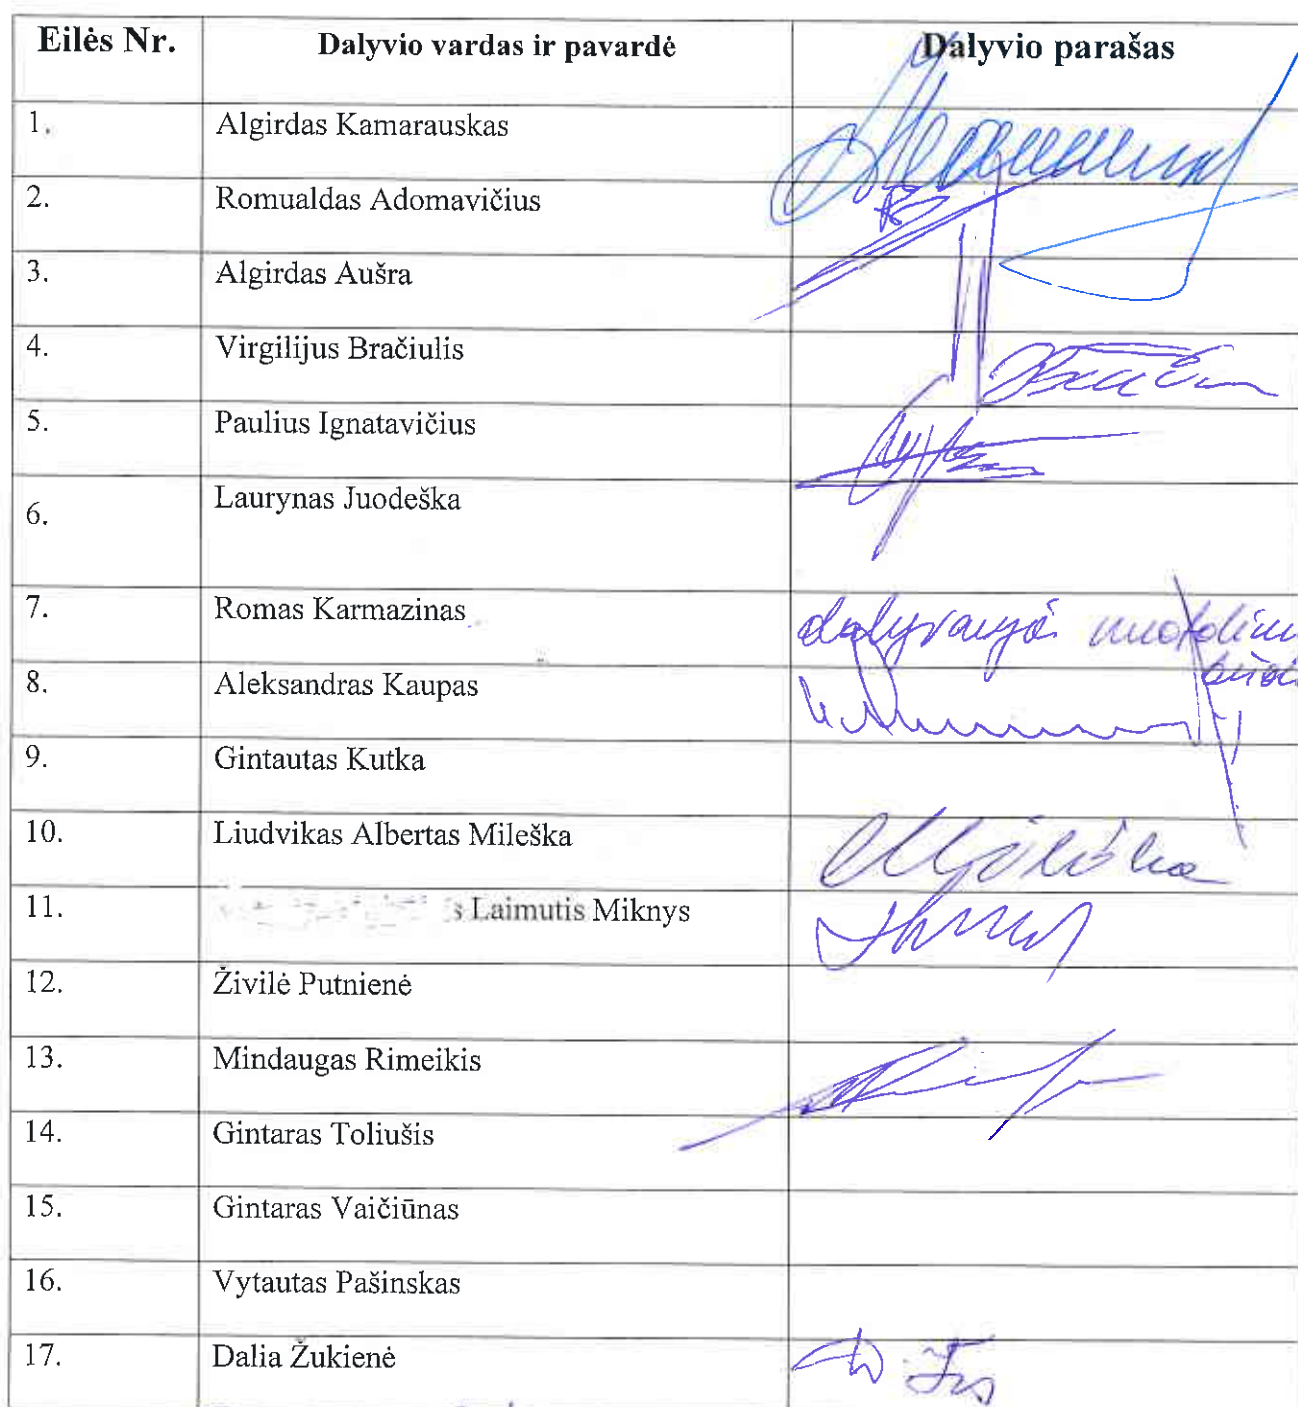 Eilės Nr. Dalyvio vardas ir pavardė Dalyvio parašas
1. Algirdas Kamarauskas
2. Romualdas Adomavičius
3. Algirdas Aušra
4. Virgilijus Bračiulis
5. Paulius Ignatavičius
6. Laurynas Juodeška
7. Romas Karmazinas dalyvauja
8. Aleksandras Kaupas
9. Gintautas Kutka
10. Liudvikas Albertas Mileška
11. s Laimutis Miknys
12. Živilė Putnienė
13. Mindaugas Rimeikis
14. Gintaras Toliušis
15. Gintaras Vaičiūnas
16. Vytautas Pašinskas
17. Dalia Žukienė